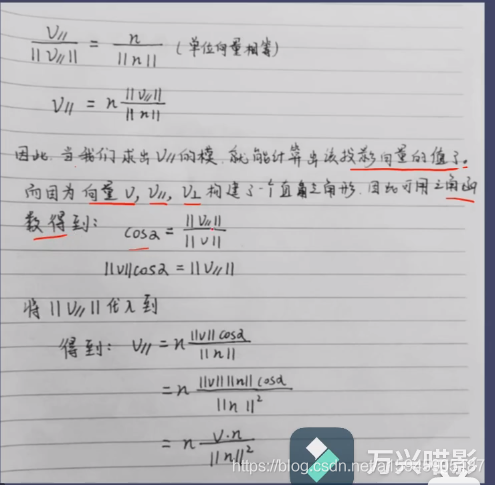 V∥/||V∥|| = n/||n|| (单位向量相等)
V∥ = n ||V∥||/||n||
因此.当我们求出V∥的模.就能计算出该投影向量的值了。
而因为向量V, V∥, V⊥ 构建了一个直角三角形.因此可用三角函
数得到: cosα = ||V∥||/||V||
||V||cosα = ||V∥||
将||V∥||代入到
得到: V∥ = n ||V||cosα/||n||
= n ||V|| ||n||cosα/||n||²
= n V·n/||n||²
万兴喵影
https://blog.csdn.net/